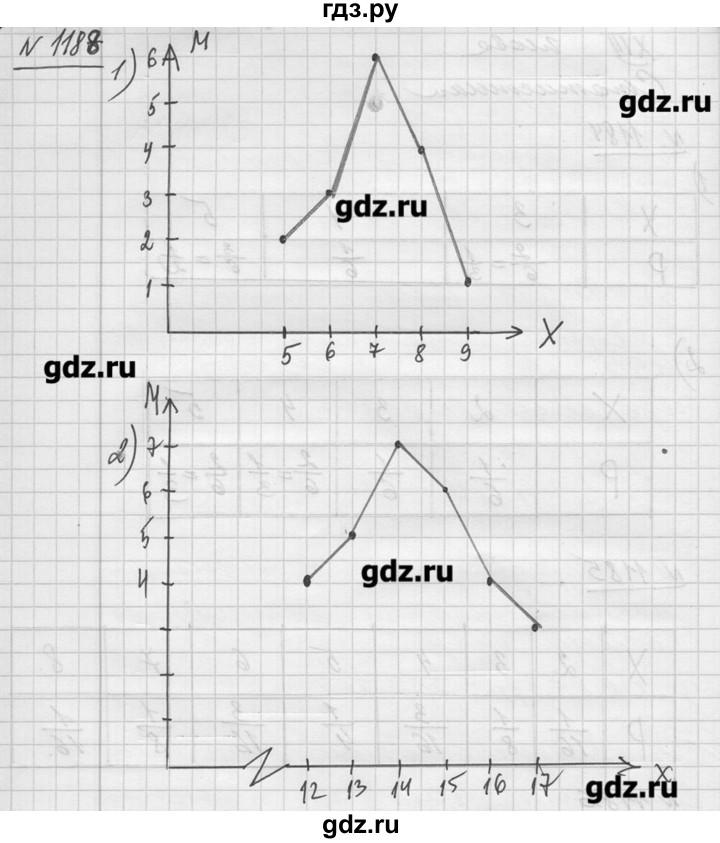 гдз.ру
N 1188
1)
M
6
5
4
3
2
1
5 6 7 8 9 X
gdz.ru
gdz.ru
gdz.ru
2)
M
7
6
5
4
12 13 14 15 16 17 X
gdz.ru
gdz.ru
gdz.ru